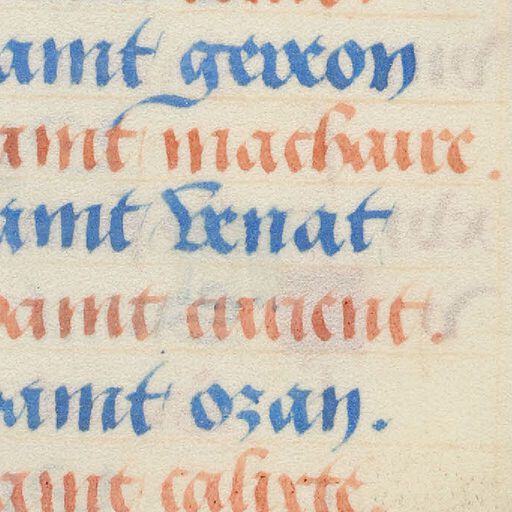 aint gereon
aint machaire.
aint venat
saint
saint ozan.
aint calixte.